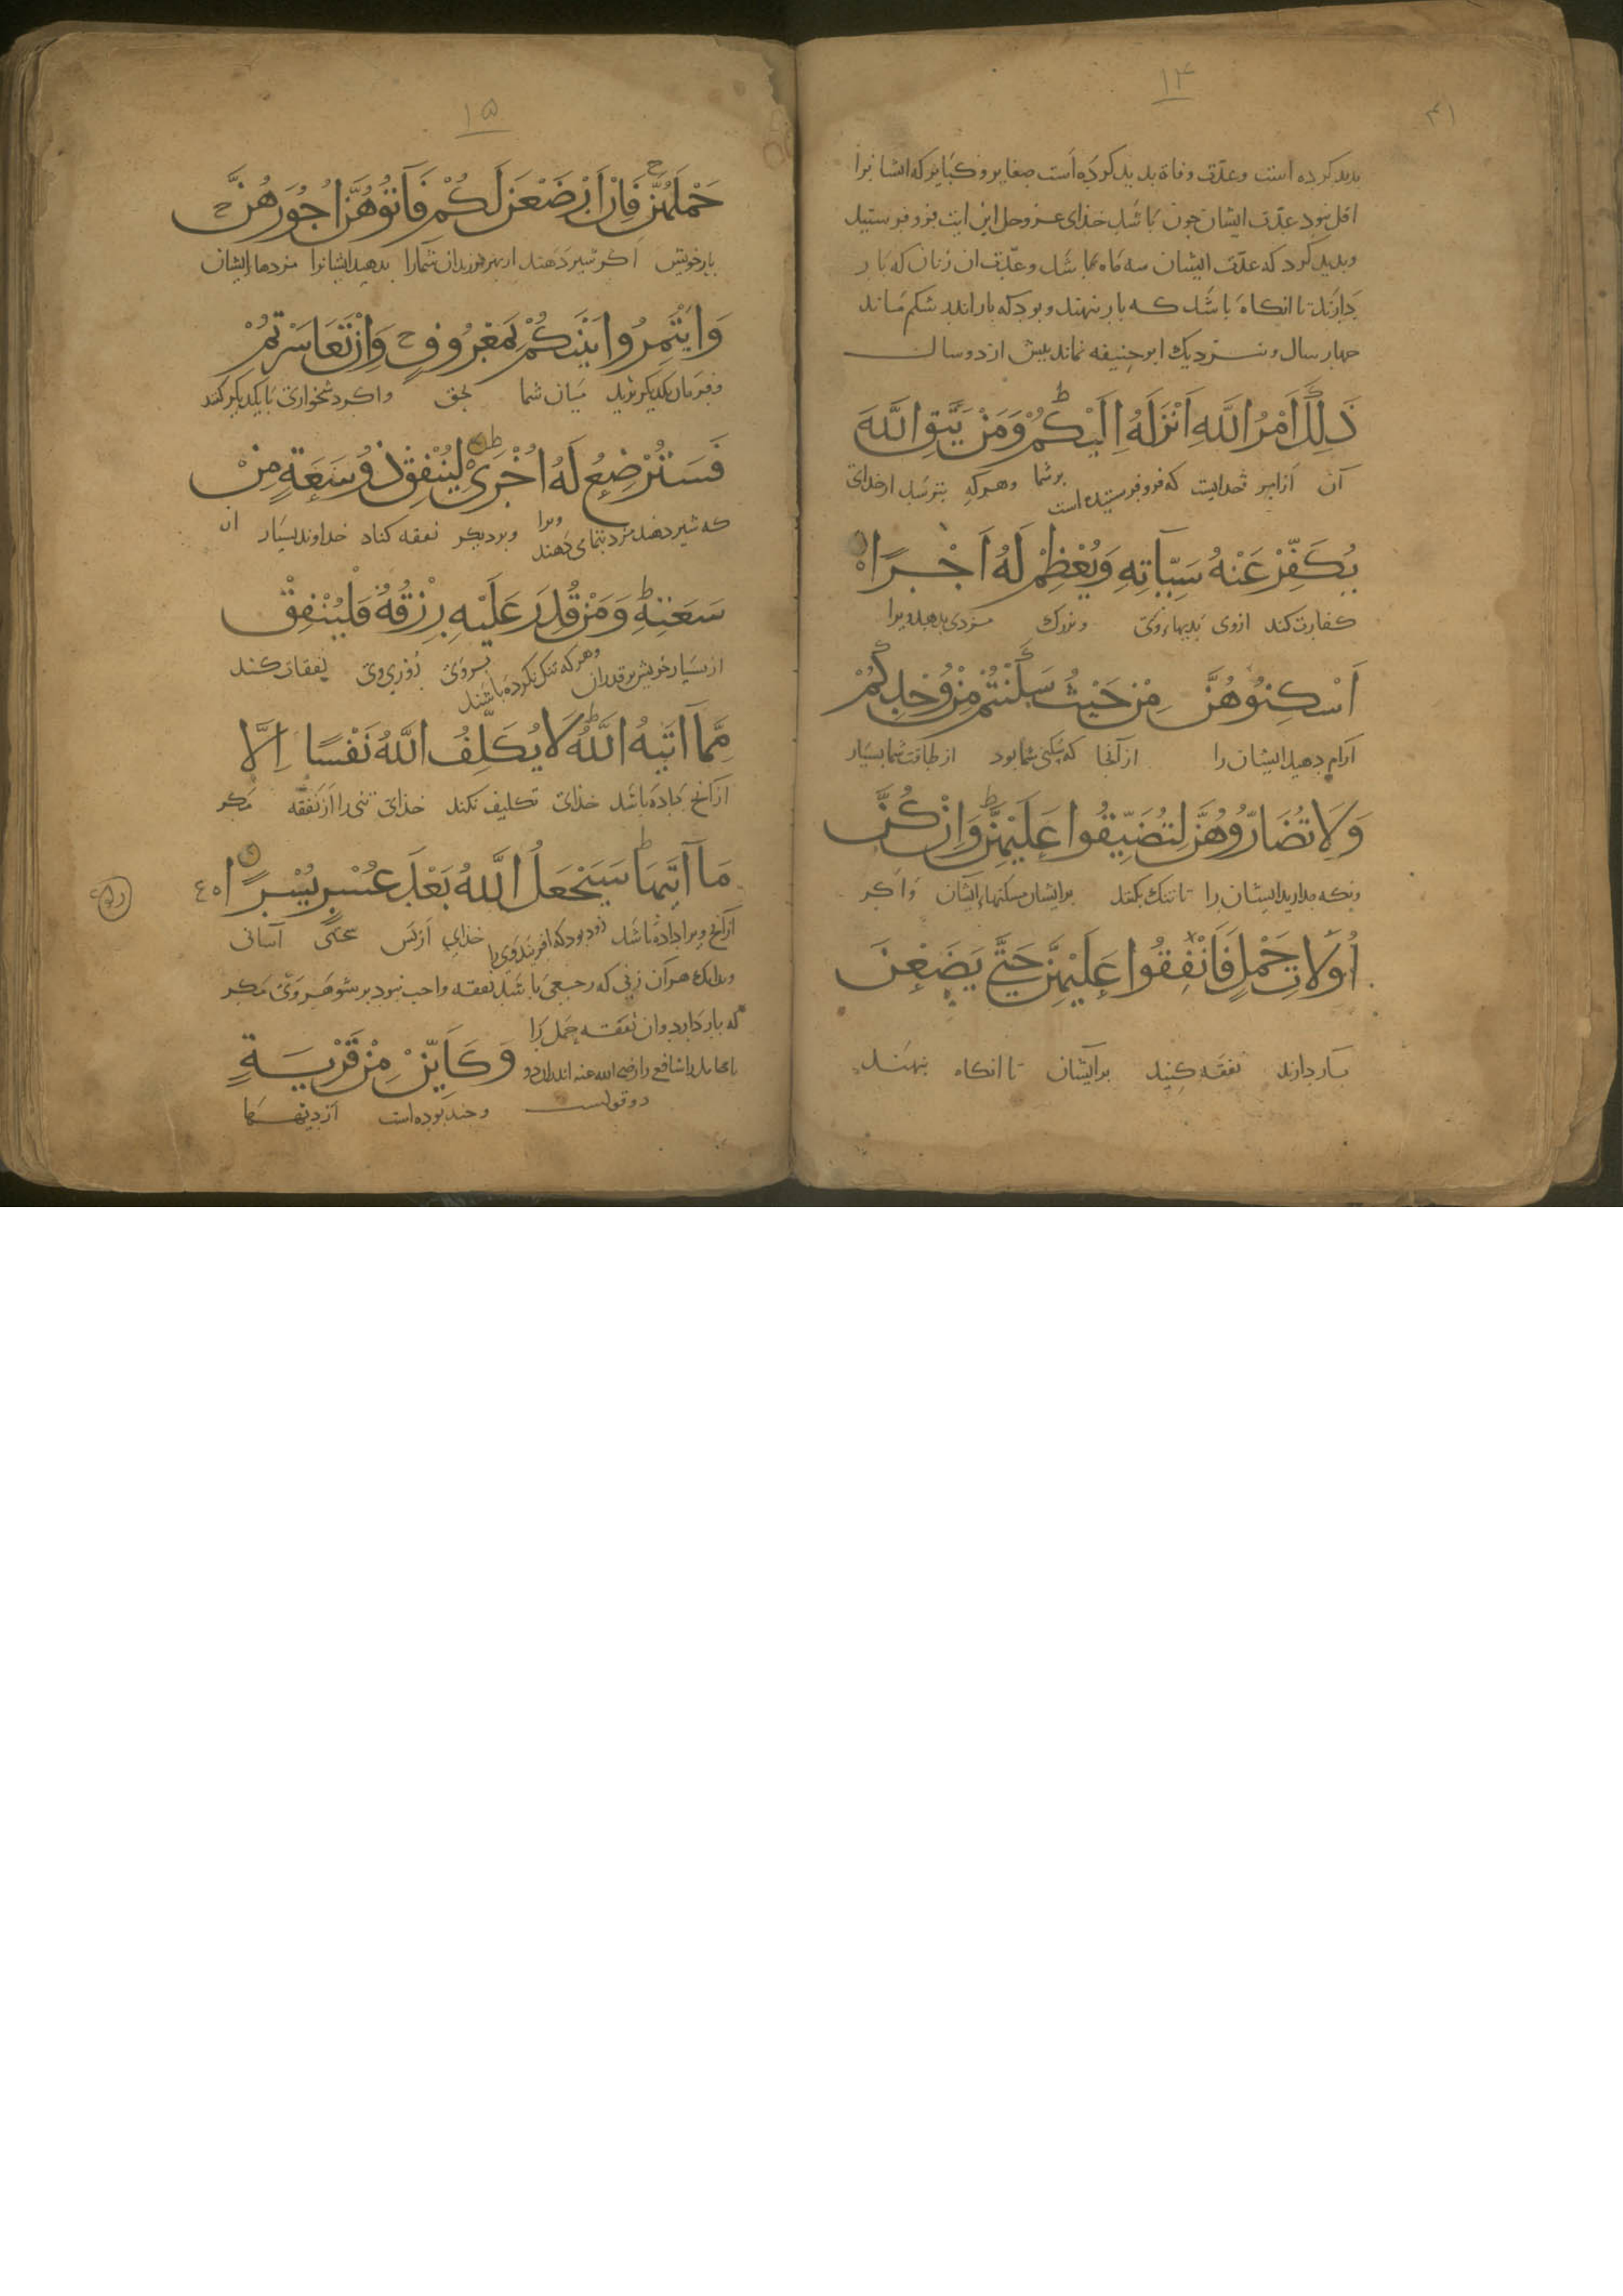 ۱۴
۴۱
بدید کرده است و عدّت وفاة بدید کرده است صغایر و کبایر که ایشانرا
اقل نبود عدّت ایشان چون باشد خذای عزوجل این ایت فرو فرستید
و بدید کرد که عدّت ایشان سه ماه باشد و عدّت ان زنان که بار
دارند تا انکاه باشد که بار بنهند و بود که بار اندر شکم ماند
جهار سال و نزدیك ابو حنیفه نماند بیش از دو سال
ذَلِكَ اَمْرُ اللَّهِ اَنْزَلَهُ اِلَيْكُمْ وَمَنْ يَتَّقِ اللَّهَ
آن از امر خدایست که فرو فرستیده است بر شما و هر که بترسد از خدای
يُكَفِّرْ عَنْهُ سَيِّآتِهِ وَيُعْظِمْ لَهُ اَجْرًا
کفارت کند ازوی بدیهاء وی و بزرك مزدی بدهد ویرا
اَسْكِنُوهُنَّ مِنْ حَيْثُ سَكَنْتُمْ مِنْ وُجْدِكُمْ
آرام دهید ایشان را از آنجا که سکنی شما بود از طاقت شما بسیار
وَلَا تُضَارُّوهُنَّ لِتُضَيِّقُوا عَلَيْهِنَّ وَاِنْ كُنَّ
ونکه مدارید ایشان را تا تنك بکند بر ایشان مسکنهاء ایشان و اکر
اُولَاتِ حَمْلٍ فَاَنْفِقُوا عَلَيْهِنَّ حَتَّى يَضَعْنَ
بار دارند نفقه کنید بر ایشان تا انکاه بنهند
۱۵
حَمْلَهُنَّ فَاِنْ اَرْضَعْنَ لَكُمْ فَآتُوهُنَّ اُجُورَهُنَّ
بار خویش اکر شیر دهند از بهر فرزندان شمارا بدهید ایشانرا مزدهاء ایشان
وَأْتَمِرُوا بَيْنَكُمْ بِمَعْرُوفٍ وَاِنْ تَعَاسَرْتُمْ
و فرمان یکدیکر برید میان شما بحق و اکر دشخواری با یکدیکر کنند
فَسَتُرْضِعُ لَهُ اُخْرَى لِيُنْفِقْ ذُو سَعَةٍ مِنْ
که شیر دهند مزد تمامی دهند ویرا و بردیکر نفقه کناد خداوند بسیار ان
سَعَتِهِ وَمَنْ قُدِرَ عَلَيْهِ رِزْقُهُ فَلْيُنْفِقْ
از بسیار خویش بر قدر ان و هر که تنك کرده باشند بروی روزی وی نفقات کند
مِمَّا آتَيهُ اللَّهُ لَا يُكَلِّفُ اللَّهُ نَفْسًا اِلَّا
از آنج بداده باشد خدای تکلیف نکند خدای تنی را از نفقه مکر
مَا آتَيهَا سَيَجْعَلُ اللَّهُ بَعْدَ عُسْرٍ يُسْرًا
از آنج ویرا داده باشد زود بود که افریند وی را خدای از پس سختی آسانی
و بدانك هر آن زنی که رجعی باشد نفقه واجب نبود بر شوهر وی مکر
که بار دارد و ان نفقه حمل را
شافعی را رضی الله عنه اندران دو
دو قولست
وَكَاَيِّنْ مِنْ قَرْيَةٍ
و چند بوده است از دیهها